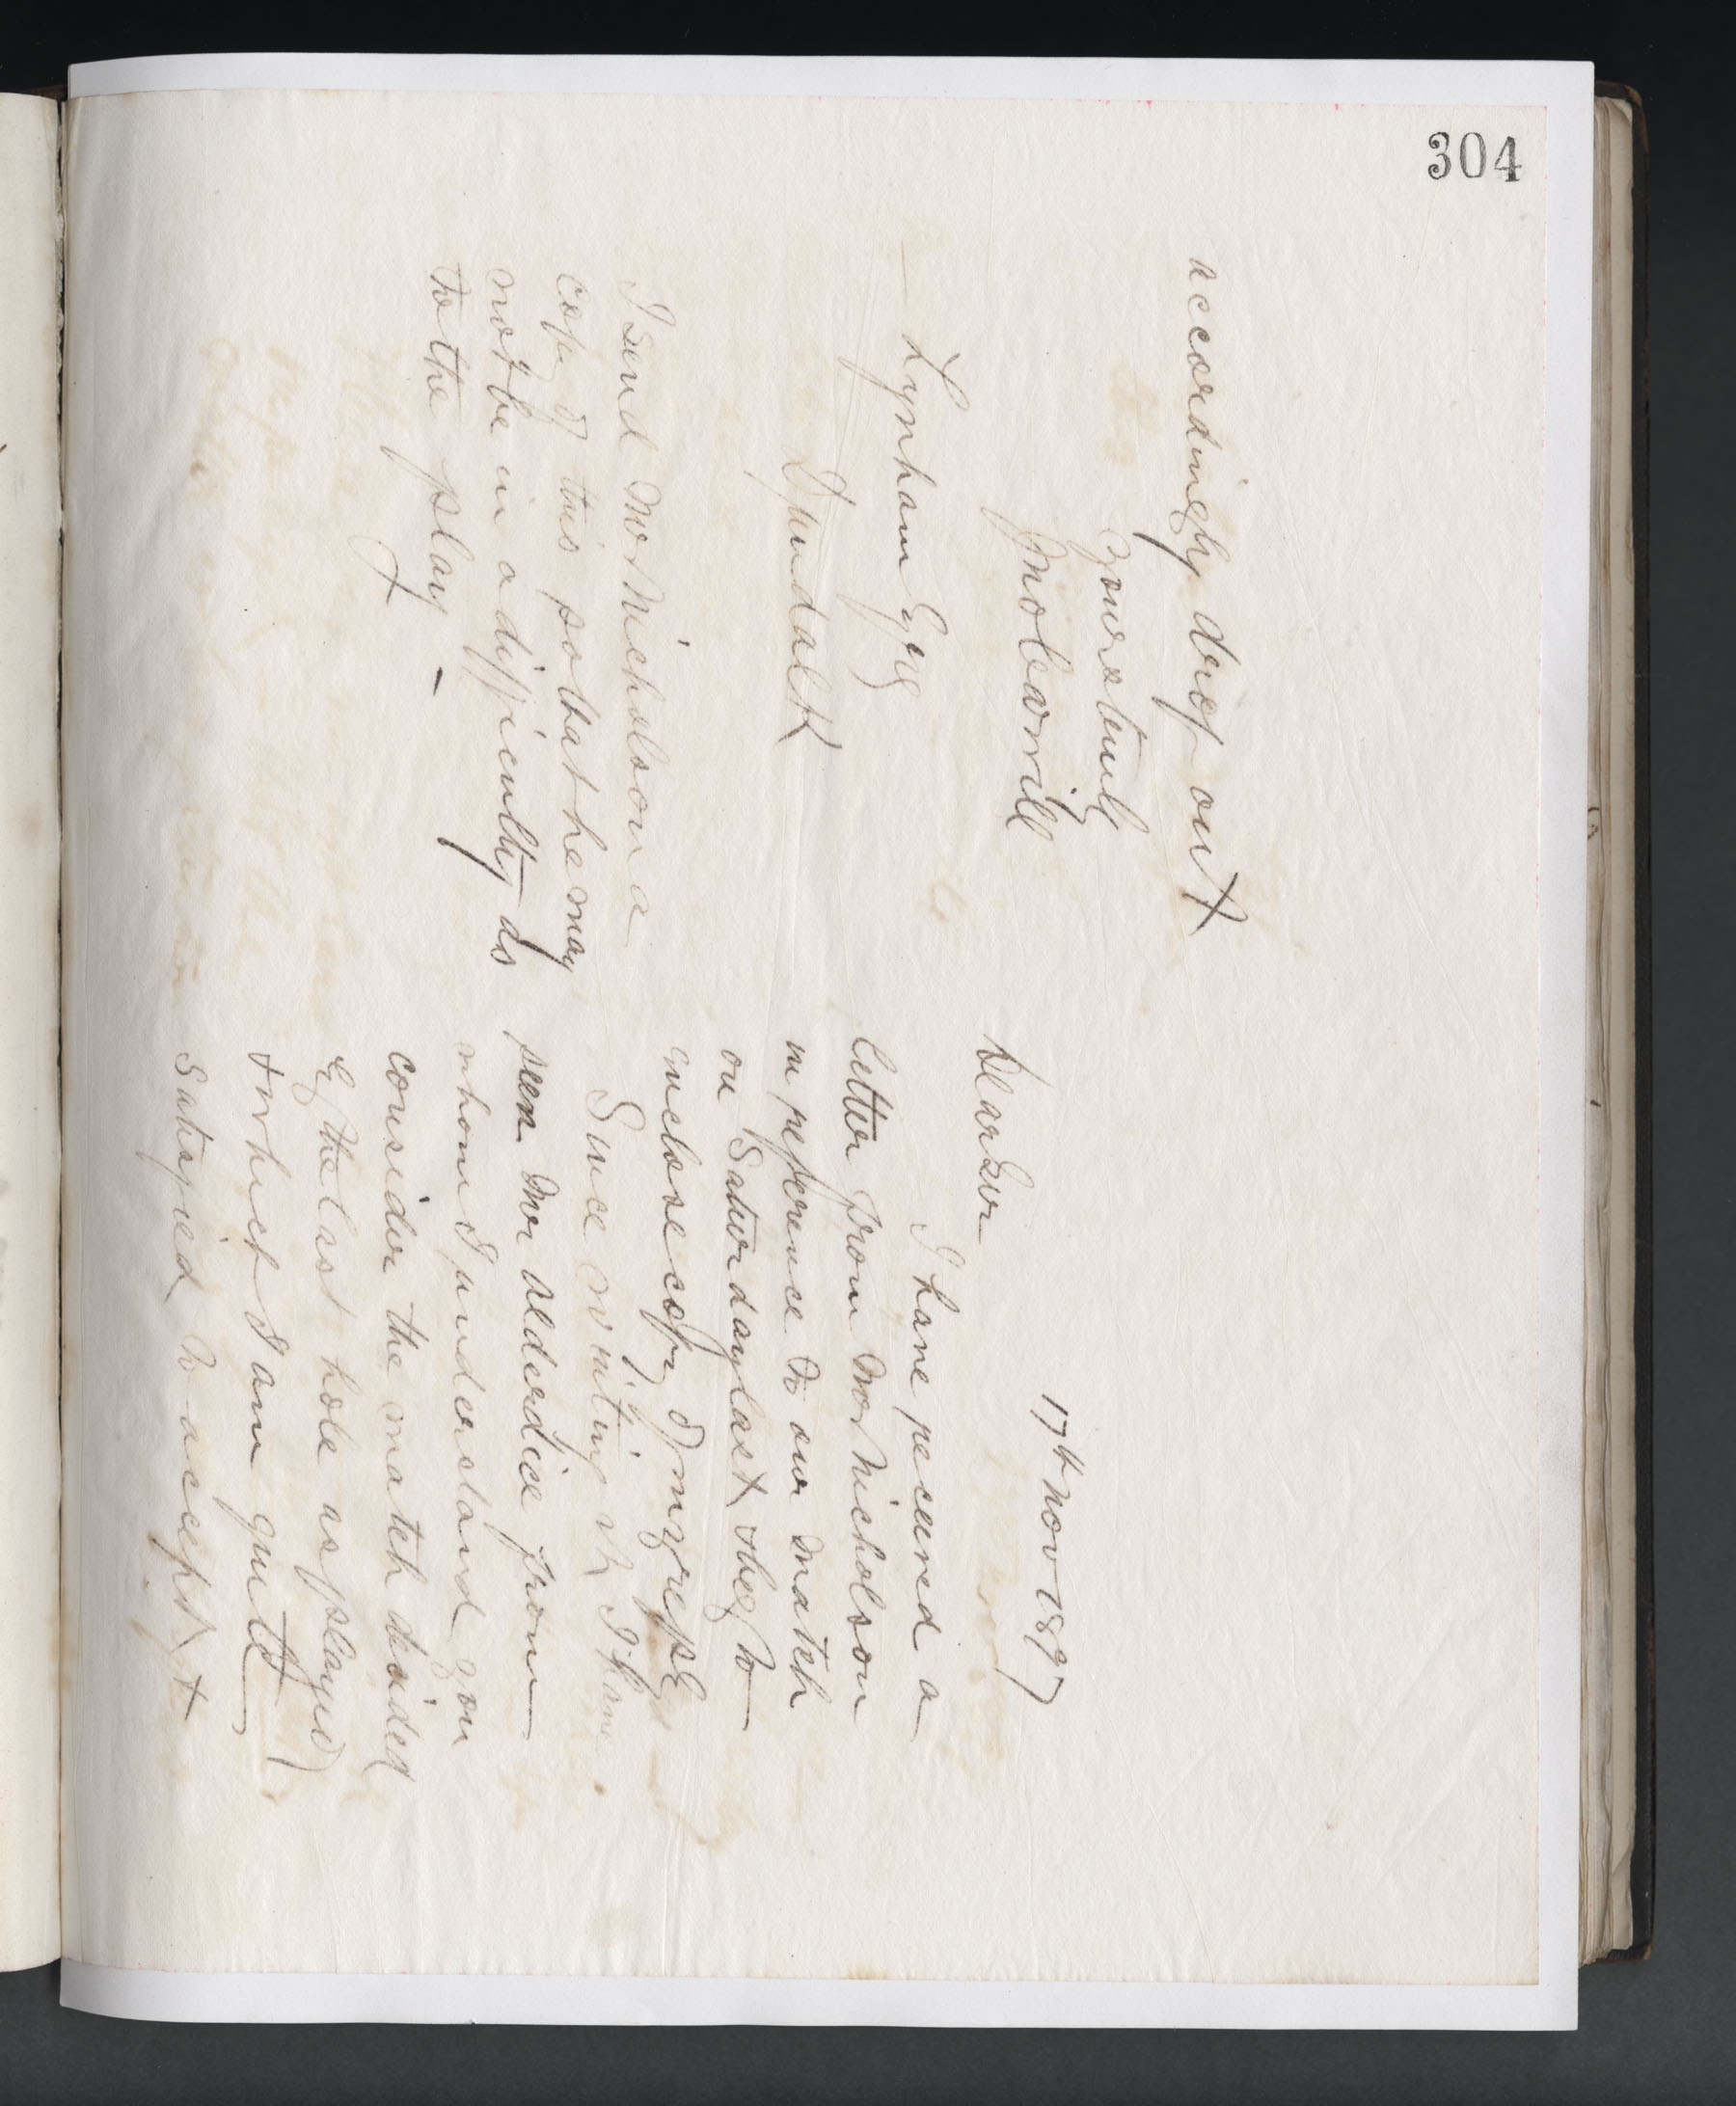 304
17th Nov 1897
Dear Sir
I have received a
letter from Mr Nicholson
in reference to our match
on Saturday last & beg to
inclose copy of my reply
Since writing it I have
seen Mr Alderdice from
whom I understand you
consider the match decided
by the last hole as played
& which I am quite
satisfied to accept, &
accordingly drop out
Yours truly
Lynham Esqre
Dundalk
I send Mr Nicholson a
copy of this so that he may
not be in a difficulty as
to the play -